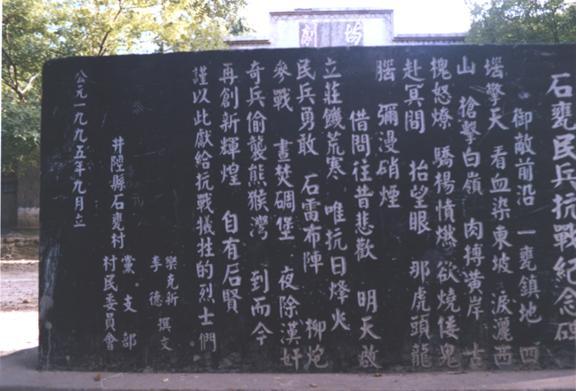 劇場
石甕民兵抗戰紀念碑
御敵前沿 一甕鎮地 四
擎天 看血染東坡 淚灑西
山 搶擊白嶺 肉搏黃岸 古
槐怒燎 驕楊憤燃 欲燒倭鬼
赴冥間 抬望眼 那虎頭龍
腦 彌漫硝煙
借問往昔悲歡 明天啟
立莊饑荒寒 唯抗日烽火
民兵勇敢 石雷布陣 柳炮
參戰 晝焚碉堡 夜除漢奸
奇兵偷襲熊猴灣 到而今
再創新輝煌 自有后賢
謹以此獻給抗戰犧牲的烈士們
樂克新
李德 撰文
井陘縣石甕村 黨支部
村民委員會
公元一九九五年九月立